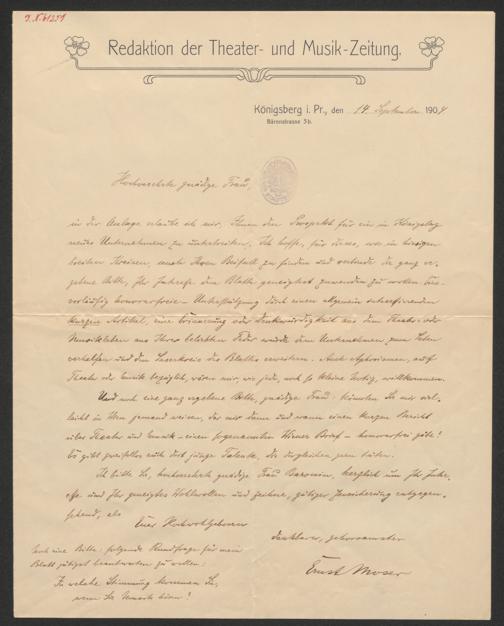 I.N. 61251
Redaktion der Theater- und Musik-Zeitung.
Königsberg i. Pr., den 14. September 1904
Bärenstrasse 5b.
Hochverehrte gnädige Frau,
in der Anlage erlaube ich mir, Ihnen den Prospekt für ein in Königsberg
neues Unternehmen zu unterbreiten. Ich hoffe, für dieses, wie in hiesigen
breiten Kreisen, auch Ihren Beifall zu finden und verbinde die ganz er-
gebene Bitte, Ihr Interesse dem Blatte geneigtest zuwenden zu wollen.
vorläufig honorarfreie Unterstützung durch einen allgemein interessierenden
kurzen Artikel, eine Erinnerung oder Denkwürdigkeit aus dem Theater- oder
Musikleben aus Ihrer beliebten Feder würde dem Unternehmen zum Leben
verhelfen und den Leserkreis des Blattes erweitern. Auch Aphorismen, auf
Theater oder Musik bezüglich, wären mir, wie jede, noch so kleine Notiz, willkommen.
Und noch eine ganz ergebene Bitte, gnädige Frau: könnten Sie mir viel-
leicht in Wien jemand weisen, der mir dann und wann einen kurzen Bericht
über Theater und Musik - einen sogenannten Wiener Brief - honorarfrei gäbe?
Es gibt zweifellos auch dort junge Talente, die dergleichen gern täten.
Ich bitte Sie, hochverehrte gnädige Frau Baronin, herzlich um Ihr Inter-
esse und Ihr geneigtes Wohlwollen und zeichne, gütiger Zusicherung entgegen-
sehend, als
Euer Hochwohlgeboren
dankbarer, gehorsamster
Ernst Moser
Noch eine Bitte: folgende Rundfrage für mein
Blatt gütigst beantworten zu wollen:
In welche Stimmung kommen Sie,
wenn Sie Musik hören?